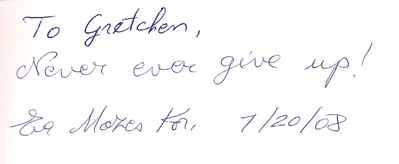 To Gretchen,
Never ever give up!
Eva Mozes Kor, 7/20/08